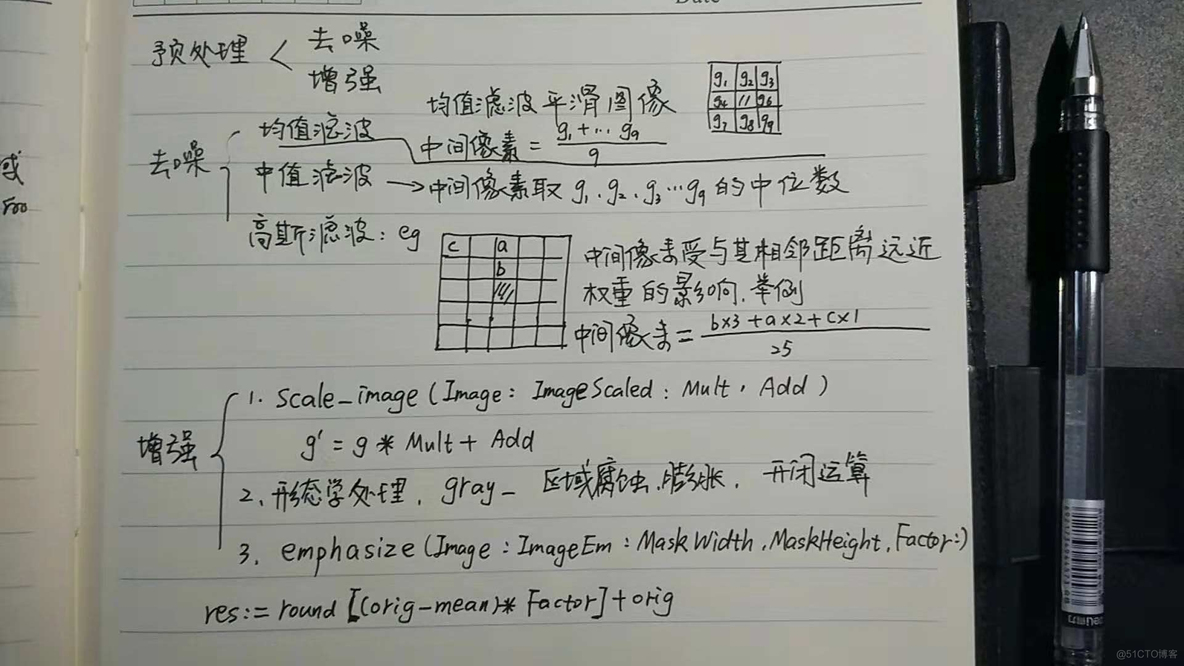 Date
预处理 < 去噪
增强
均值滤波平滑图像
g₁ g₂ g₃
g₄ g₆
g₇ g₈ g₉
去噪
均值滤波
中间像素 = g₁+…g₉ / 9
中值滤波 → 中间像素取 g₁、g₂、g₃…g₉ 的中位数
高斯滤波: eg
c a
b
中间像素受与其相邻距离远近
权重的影响,举例
中间像素 = b×3+a×2+c×1 / 25
增强
1. Scale_image (Image : ImageScaled : Mult, Add )
g' = g * Mult + Add
2、形态学处理, gray_ 区域腐蚀、膨胀, 开闭运算
3. emphasize (Image : ImageEm : MaskWidth, MaskHeight, Factor:)
res:= round [(orig-mean)* Factor]+orig
或
@51CTO博客